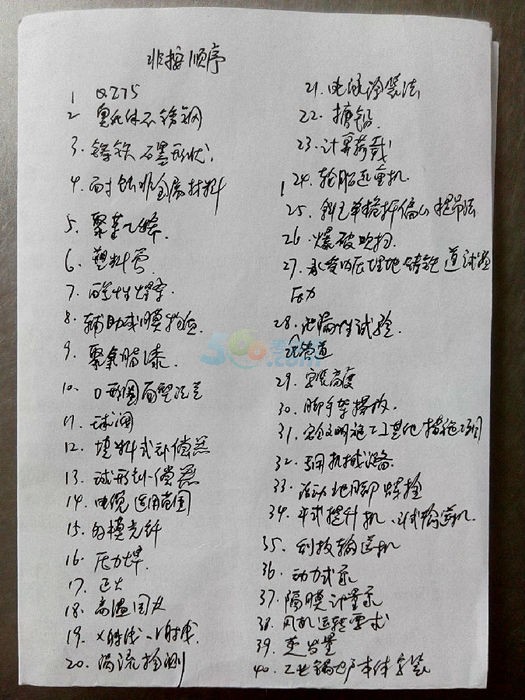 非按顺序
1 Q275
2 奥氏体不锈钢
3. 铸铁 石墨形状
4. 耐蚀非金属材料
5. 聚苯乙烯
6. 塑料管
7. 酸性焊条
8. 辅助成膜物质
9. 聚氨脂漆
10. O形圈面型法兰
11. 球阀
12. 填料式补偿器
13. 球形补偿器
14. 电缆适用范围
15. 多模光纤
16. 压力焊
17. 正火
18. 高温回火
19. X射线、γ射线
20. 涡流检测
21. 电弧
22. 搪铅
23. 计算荷载
24. 轮胎起重机
25. 斜立单桅杆偏心提吊法
26. 爆破吹扫
27. 承受内压埋地铸铁管道试验
压力
28. 泄漏性试验
29. 安装高度
30. 脚手架搭拆
31. 安全文明施工其他措施项目
32. 专用机械设备
33. 活动地脚螺栓
34. 斗式提升机、斗式输送机
35. 刮板输送机
36. 动力式泵
37. 隔膜计量泵
38. 风机运转要求
39. 变质量
40. 工业锅炉本体安装